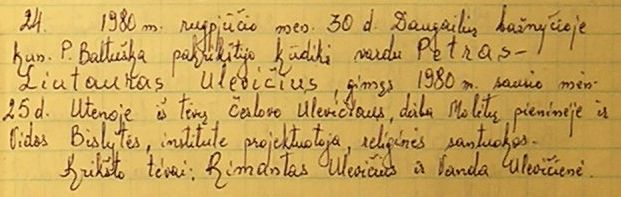 24. 1980 m. rugpjūčio mėn. 30 d. Daugailių bažnyčioje
kun. P. Baltuška pakrikštijo kūdikį vardu Petras-
Liutauras Ulevičius, gimęs 1980 m. sausio mėn.
25 d. Utenoje iš tėvų Česlovo Ulevičiaus, dirba Molėtų pieninėje ir
Vidos Bislytės, institute projektuotoja, religinės santuokos.
Krikšto tėvai: Rimantas Ulevičius ir Vanda Ulevičienė.